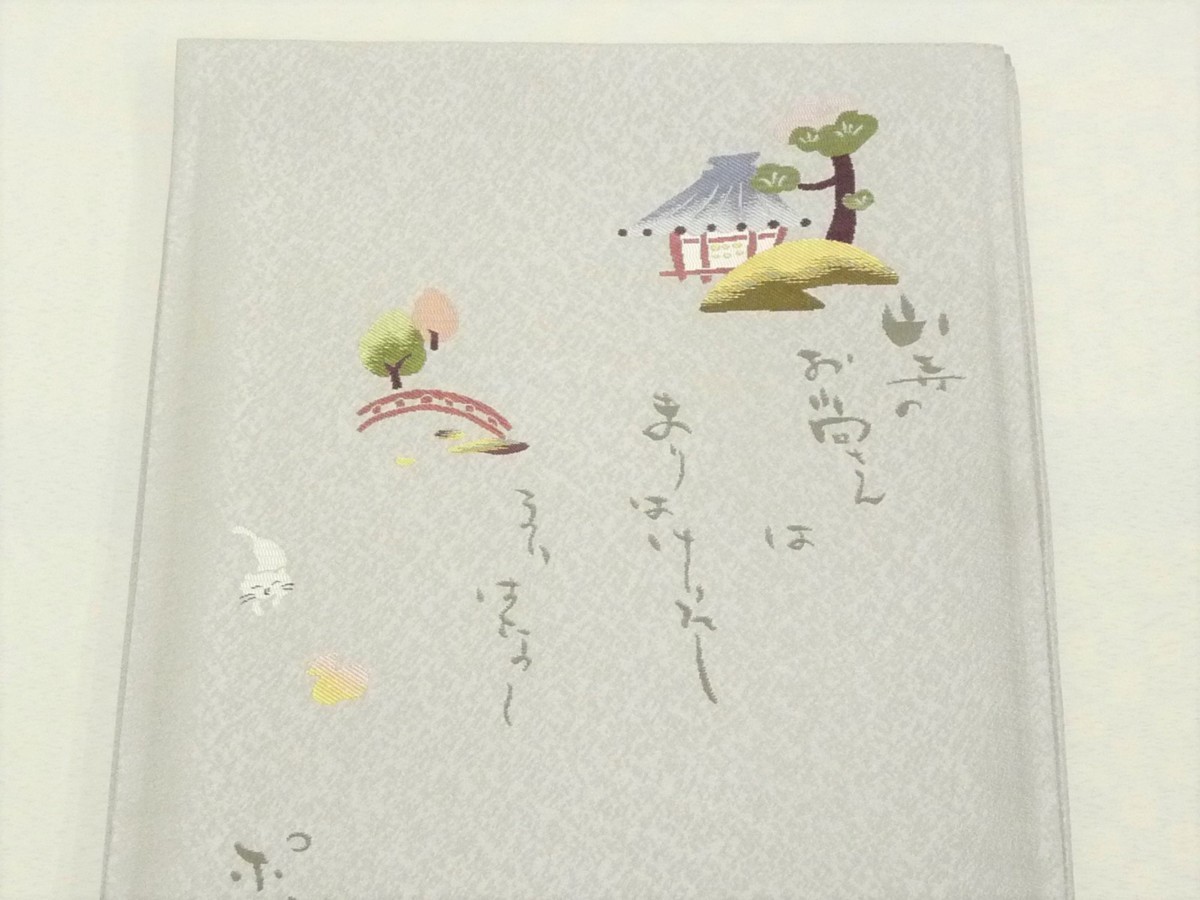 山寺の
お尚さん
は
まりはけりたし
まりはなし
ポ